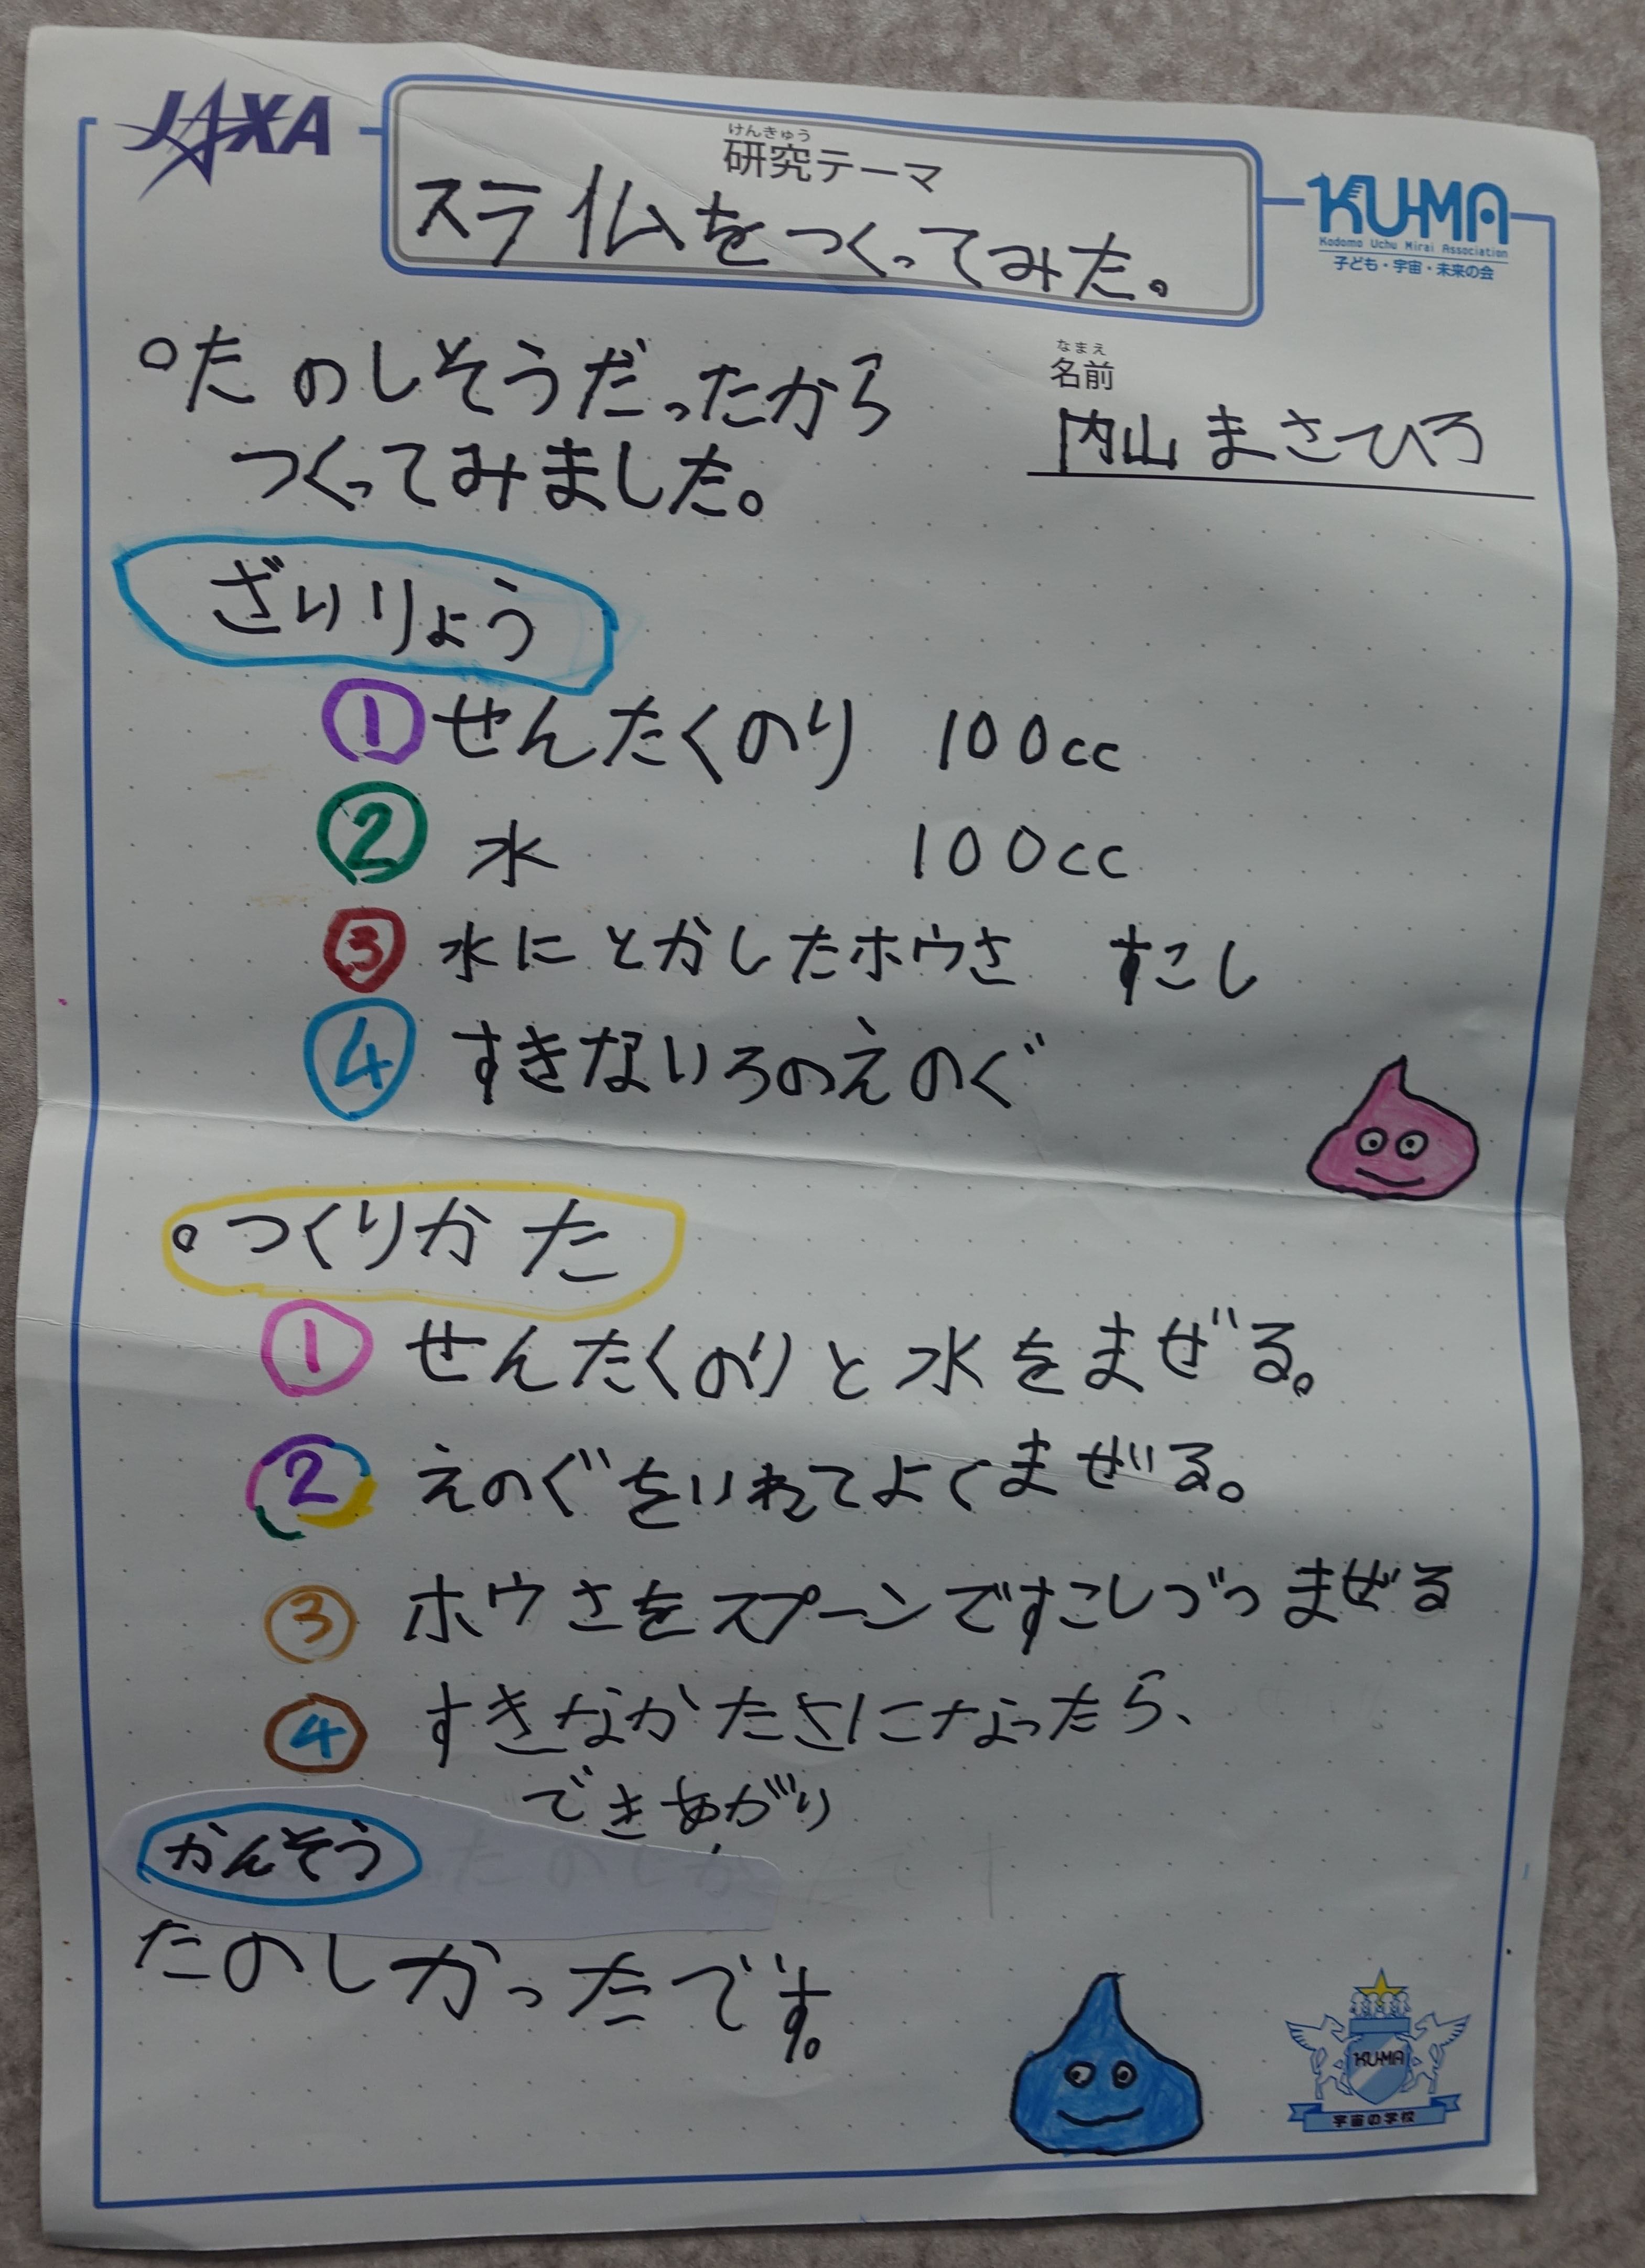 JAXA
けんきゅう
研究テーマ
スライムをつくってみた。
KUMA
Kodomo Uchu Mirai Association
子ども・宇宙・未来の会
なまえ
名前
内山まさひろ
○たのしそうだったから
つくってみました。
ざいりょう
① せんたくのり 100cc
② 水 100cc
③ 水にとかしたホウさ すこし
④ すきないろのえのぐ
○つくりかた
① せんたくのりと水をまぜる。
② えのぐをいれてよくまぜる。
③ ホウさをスプーンですこしづつまぜる
④ すきなかたさになったら、
できあがり
かんそう
たのしかったです。
KUMA
宇宙の学校